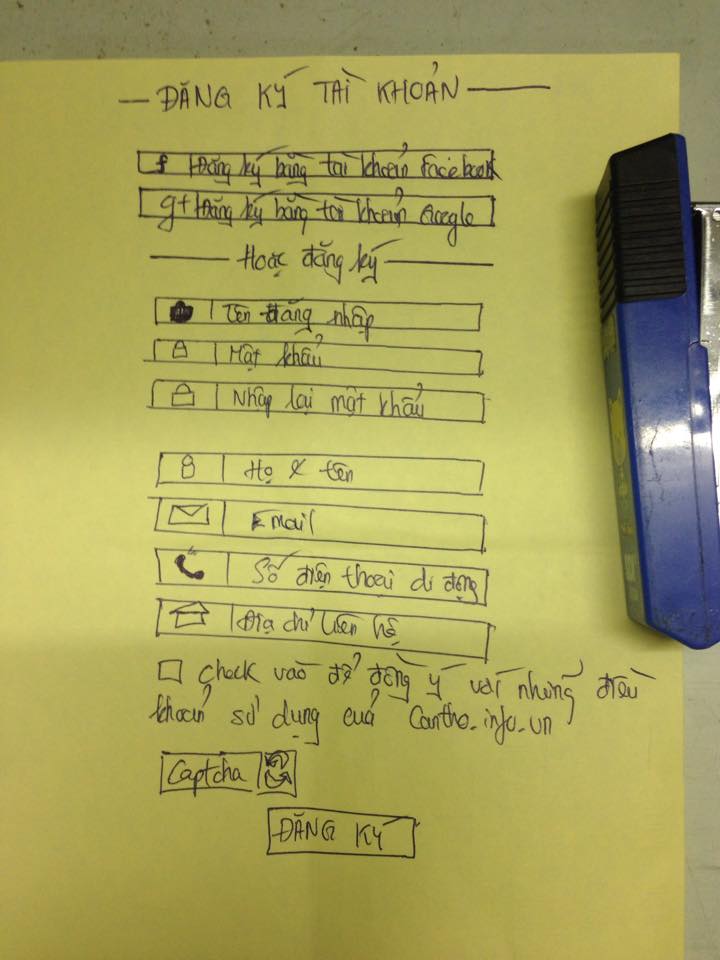 ĐĂNG KÝ TÀI KHOẢN
f Đăng ký bằng tài khoản Facebook
g+ Đăng ký bằng tài khoản Google
Hoặc đăng ký
Tên đăng nhập
Mật khẩu
Nhập lại mật khẩu
Họ & tên
Email
Số điện thoại di động
Địa chỉ liên hệ
Check vào để đồng ý với những điều
khoản sử dụng của Cantho.info.vn
Captcha
ĐĂNG KÝ